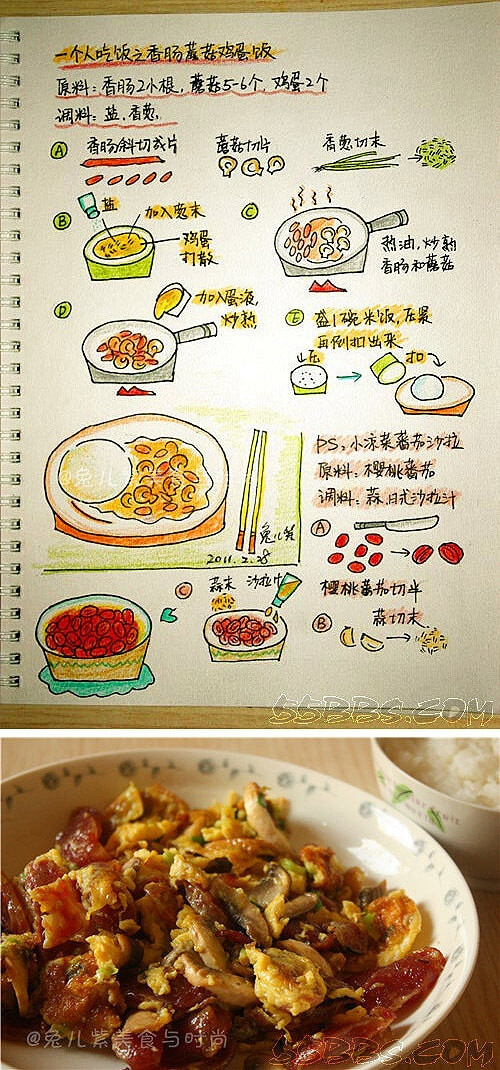 一个人吃饭之香肠蘑菇鸡蛋饭
原料：香肠2小根，蘑菇5-6个，鸡蛋2个
调料：盐，香葱，
A 香肠斜切成片 蘑菇切片 香葱切末
B 盐 加入葱末
鸡蛋
打散
C 热油，炒熟
香肠和蘑菇
D 加入蛋液，
炒熟
E 盛1碗米饭，压紧
再倒扣出来
压 扣
@兔儿
兔儿紫
2011.2.28
PS，小凉菜番茄沙拉
原料：樱桃番茄
调料：蒜，日式沙拉汁
A
樱桃番茄切半
B 蒜切末
C 蒜末 沙拉汁
55BBS.COM
@兔儿紫美食与时尚
55BBS.COM